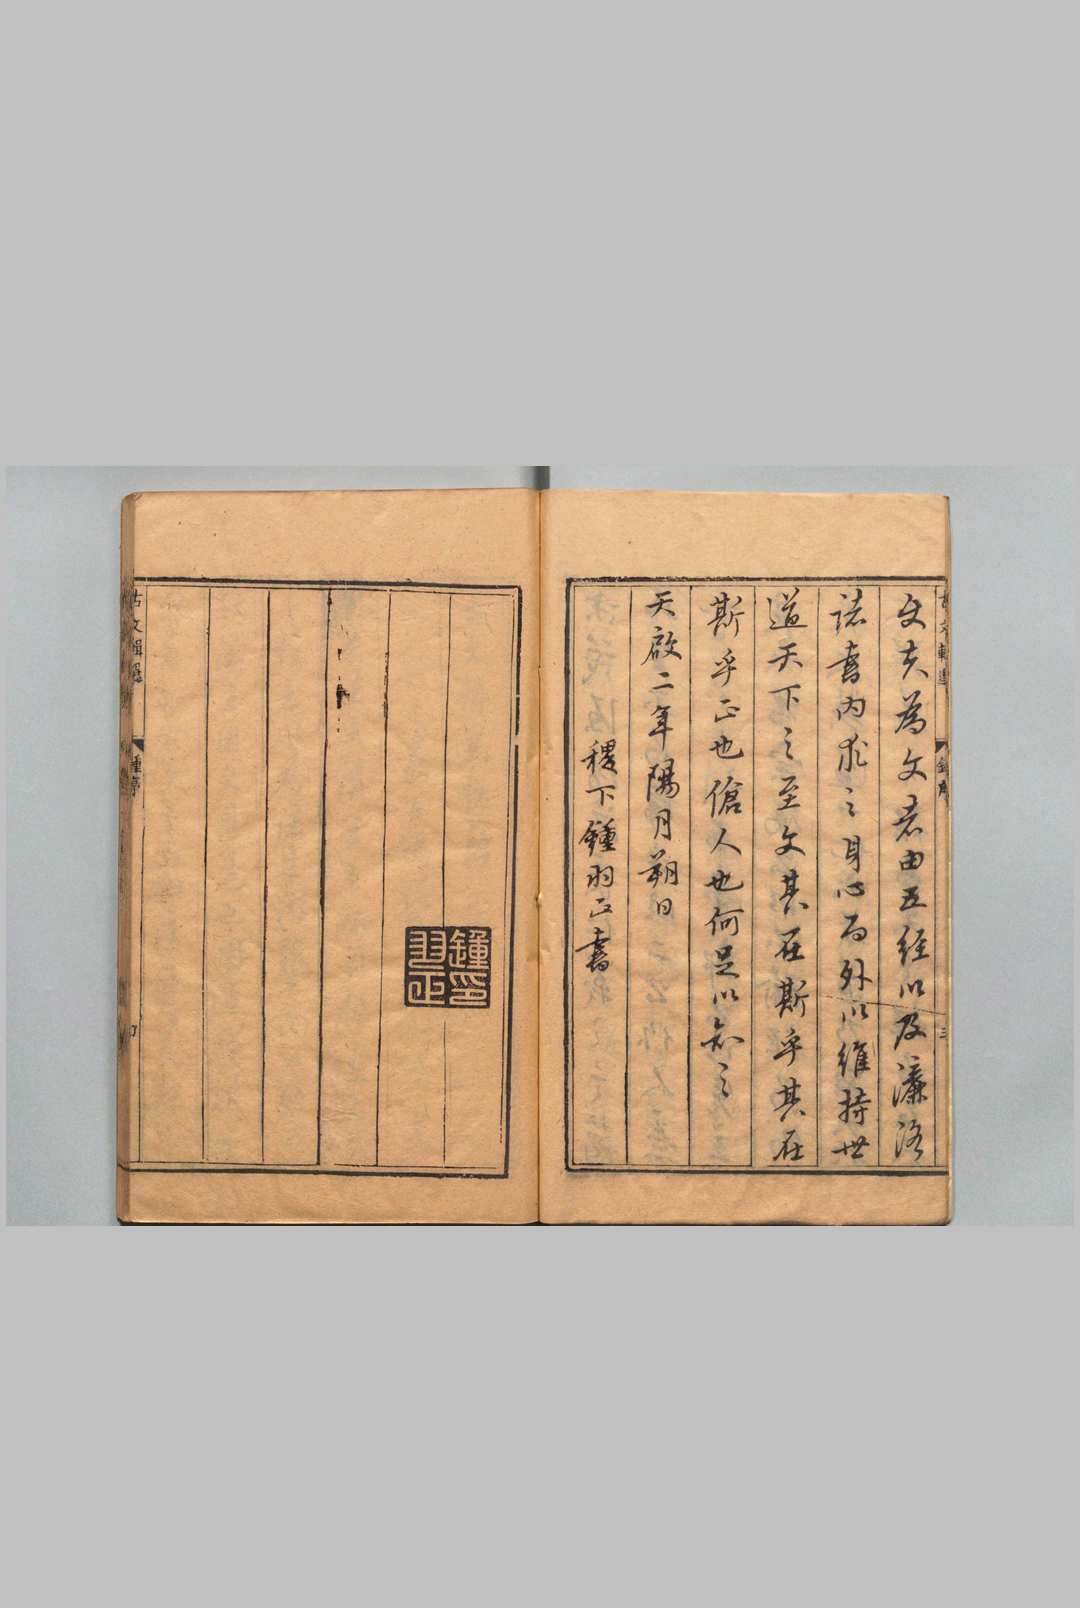 文夫為文者由五經以及濂洛
諸書内求之身心而外以維持世
道天下之至文其在斯乎其在
斯乎正也傖人也何足以知之
天啟二年陽月朔日
稷下鍾羽正書
鍾羽正印
古文輯選
鍾序
三